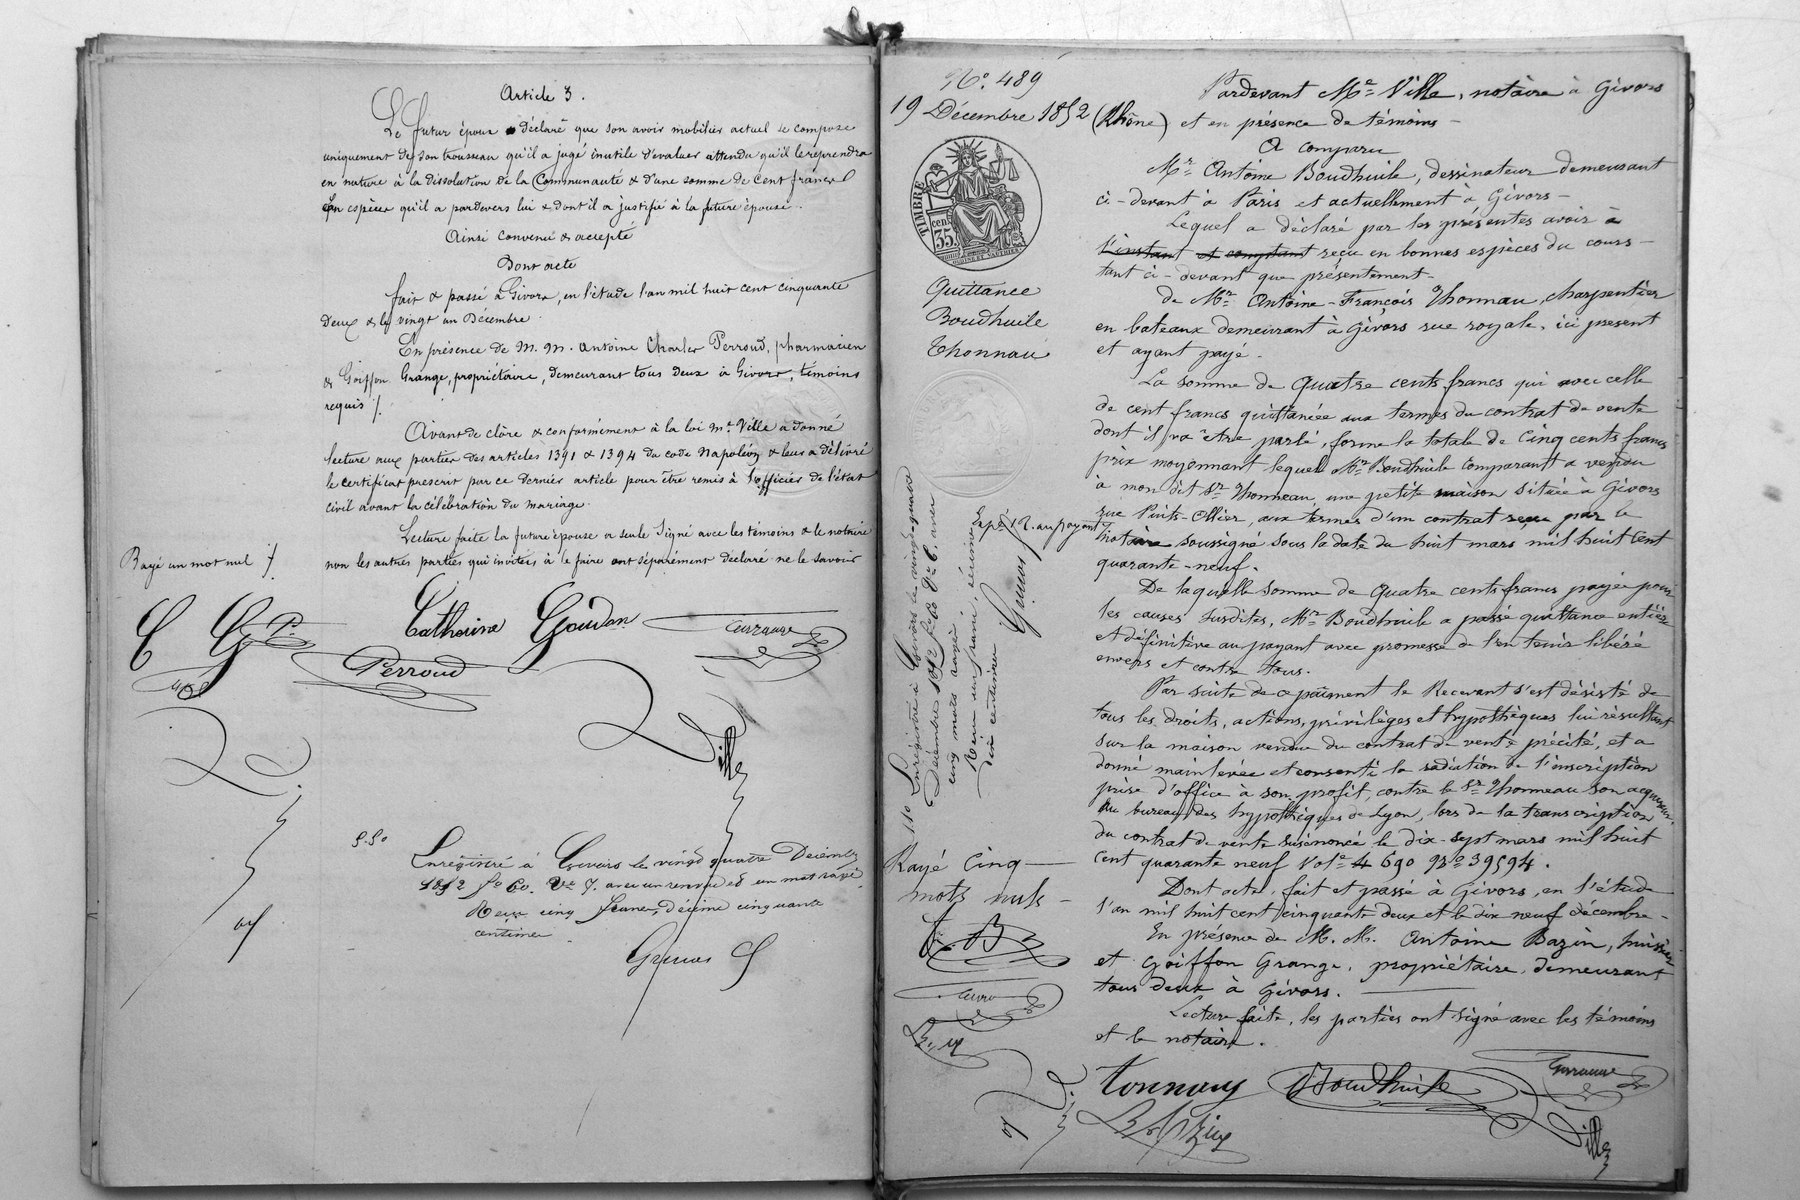 Article 3.
Le futur époux déclare que son avoir mobilier actuel se compose
uniquement de son trousseau qu'il a jugé inutile d'évaluer attendu qu'il le reprendra
en nature à la dissolution de la Communauté & d'une somme de Cent francs
en espèces qu'il a pardevers lui & dont il a justifié à la future épouse.
Ainsi convenu & accepté
Dont acte
fait & passé à Givors, en l'étude l'an mil huit cent cinquante
deux & le vingt un Décembre.
En présence de M. M. Antoine Charles Perroud, pharmacien
& Goiffon Grange, propriétaire, demeurant tous deux à Givors, témoins
requis /.
Avant de clôre & conformément à la loi Me. Ville a donné
lecture aux parties des articles 1391 & 1394 du code Napoléon & leur a délivré
le certificat prescrit par ce dernier article pour être remis à l'officier de l'état
civil avant la célébration du mariage.
Lecture faite la future épouse a seule signé avec les témoins & le notaire
non les autres parties qui invitées à le faire ont séparément déclaré ne le savoir
Rayé un mot nul /.
C G P.
Catherine Goudon
Perroud
Ville
5.50
Enregistré à Givors le vingt quatre Décembre
1852 fo 60. Vo 7. avec un renvoi et un mot rayé
Reçu cinq francs, décime cinquante
centimes
No. 489
19 Décembre 1852
TIMBRE
35 cent
Quittance
Boudhuile
Thonnau
Enregistré à Givors le vingt quatre
Décembre 1852 fo 60 Vo 6. avec
cinq mots rayés.
Reçu un franc, décime
dix centimes
1 10
Rayé Cinq
mots nuls
B
Pardevant Me. Ville, notaire à Givors
(Rhône) et en présence de témoins
A comparu
Mr. Antoine Boudhuile, dessinateur demeurant
ci-devant à Paris et actuellement à Givors
Lequel a déclaré par les présentes avoir à
l'instant et comptant reçu en bonnes espèces du cours
tant ci-devant que présentement
de Mr. Antoine-François Thonnau, charpentier
en bateaux demeurant à Givors rue royale, ici present
et ayant payé.
La somme de quatre cents francs qui avec celle
de cent francs quittancée aux termes du contrat de vente
dont il va être parlé, forme la totale de Cinq cents francs
prix moyennant lequel Mr. Boudhuile Comparant a vendu
à mon dit Sr. Thonneau, une petite maison située à Givors
rue Puits-Ollier, aux termes d'un contrat reçu par le
notaire soussigné sous la date du huit mars mil huit Cent
quarante-neuf.
De laquelle somme de quatre cents francs payée pour
les causes susdites, Mr. Boudhuile a passé quittance entière
et définitive au payant avec promesse de l'en tenir libéré
envers et contre tous.
Par suite de ce paiment le Recevant s'est désisté de
tous les droits, actions, privilèges et hypothèques lui résultant
sur la maison vendue du contrat de vente précité, et a
donné mainlevée et consenti la radiation de l'inscription
prise d'office à son profit, contre le Sr. Thonneau son acquereur.
au bureau des hypothèques de Lyon, lors de la transcription
du contrat de vente susénoncé le dix-sept mars mil huit
cent quarante neuf Vole. 4 690 No 39594.
Dont acte, fait et passé à Givors, en l'étude
l'an mil huit cent cinquante deux et le dix neuf décembre
En présence de M. M. Antoine Bazin, huissier
et Goiffon Grange, propriétaire, demeurant
tous deux à Givors.
Lecture faite, les parties ont signé avec les témoins
et le notaire.
tonnau
Boudhuile
BAzin
Ville